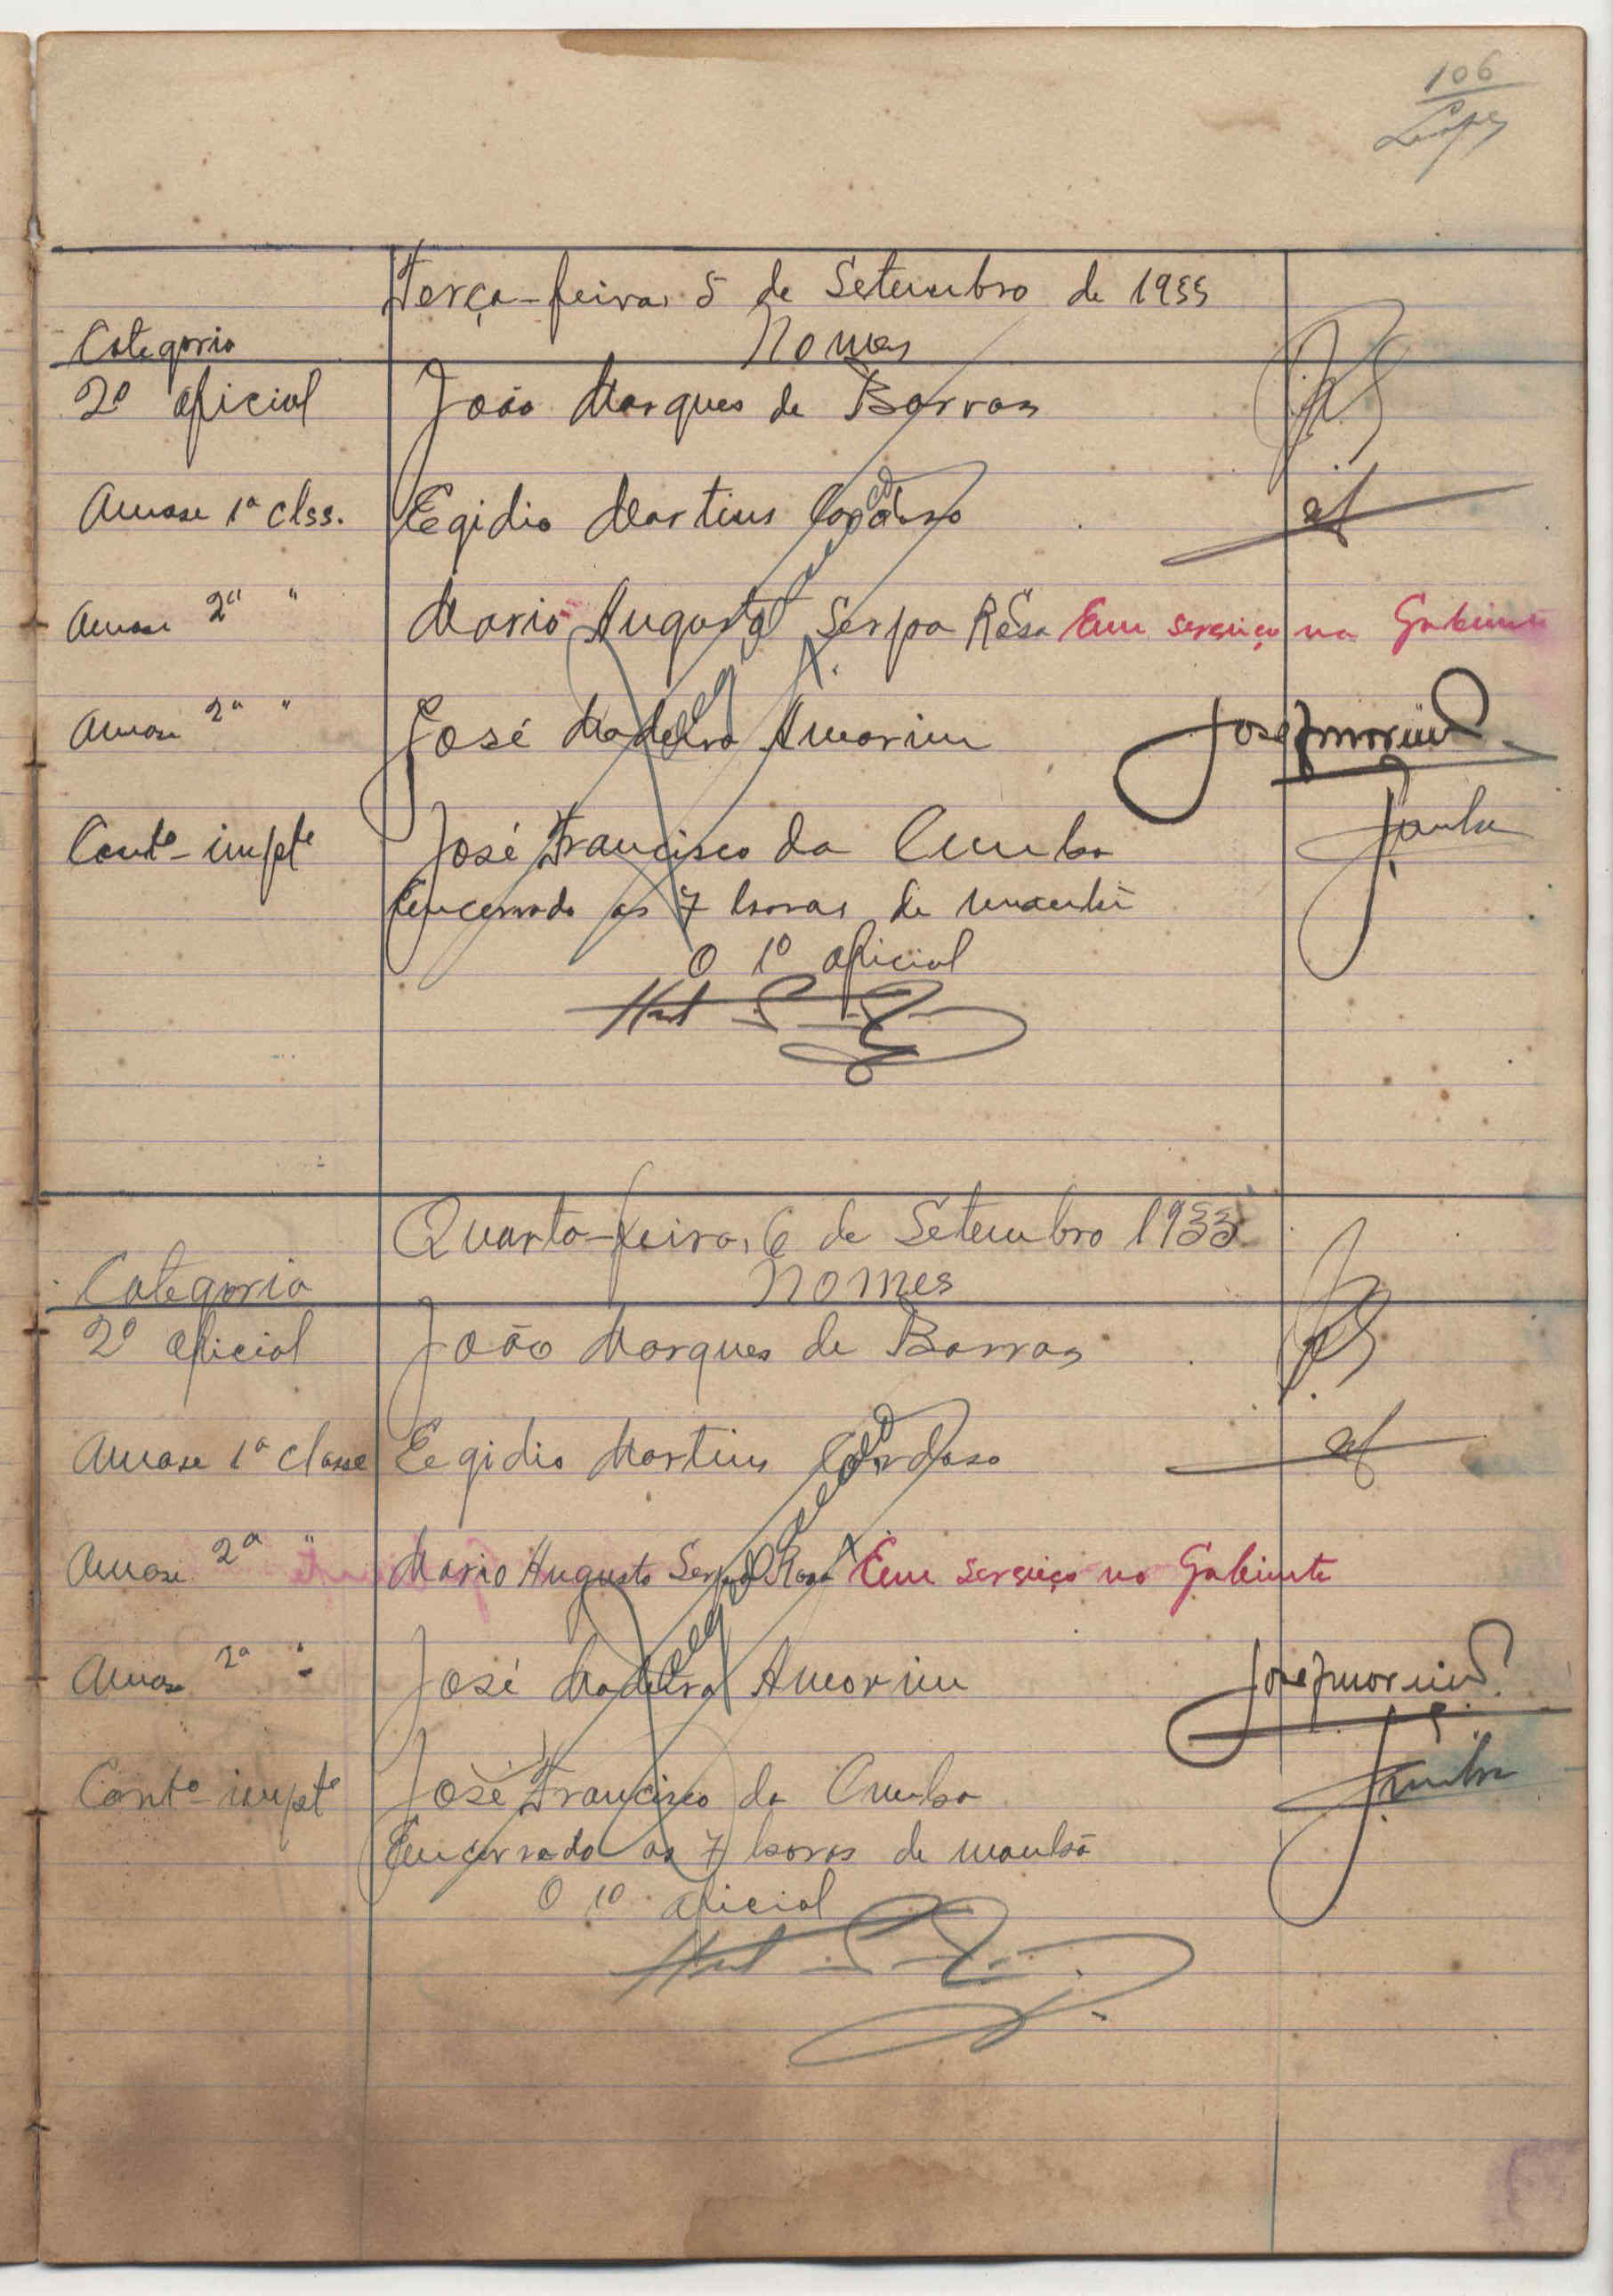 106
Terça-feira, 5 de Setembro de 1933
Categoria Nomes
2º oficial João Marques de Barros
Amase 1ª clss. Egidio Martins Cardoso
Amase 2ª " Mario Augusto Serpa Rosa Em serviço no Gabinete
Amase 2ª " José Madeira Amorim José Amorim
Contº impte José Francisco da Cunha Cunha
Encerrado as 7 horas de manhã
O 1º oficial
Quarta-feira, 6 de Setembro 1933
Categoria Nomes
2º oficial João Marques de Barros
Amase 1ª classe Egidio Martins Cardoso
Amase 2ª " Mario Augusto Serpa Rosa Em serviço no Gabinete
Amase 2ª " José Madeira Amorim José Amorim
Contº impte José Francisco da Cunha Cunha
Encerrado as 7 horas de manhã
O 1º oficial